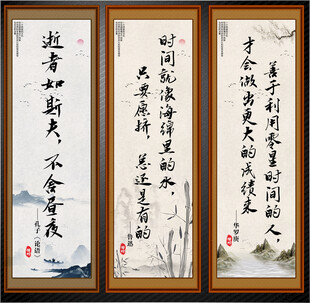 逝者如斯夫，不舍昼夜
——孔子《论语》
时间就像海绵里的水，
只要愿挤，总还是有的
——鲁迅
善于利用零星时间的人，
才会做出更大的成绩来
——华罗庚